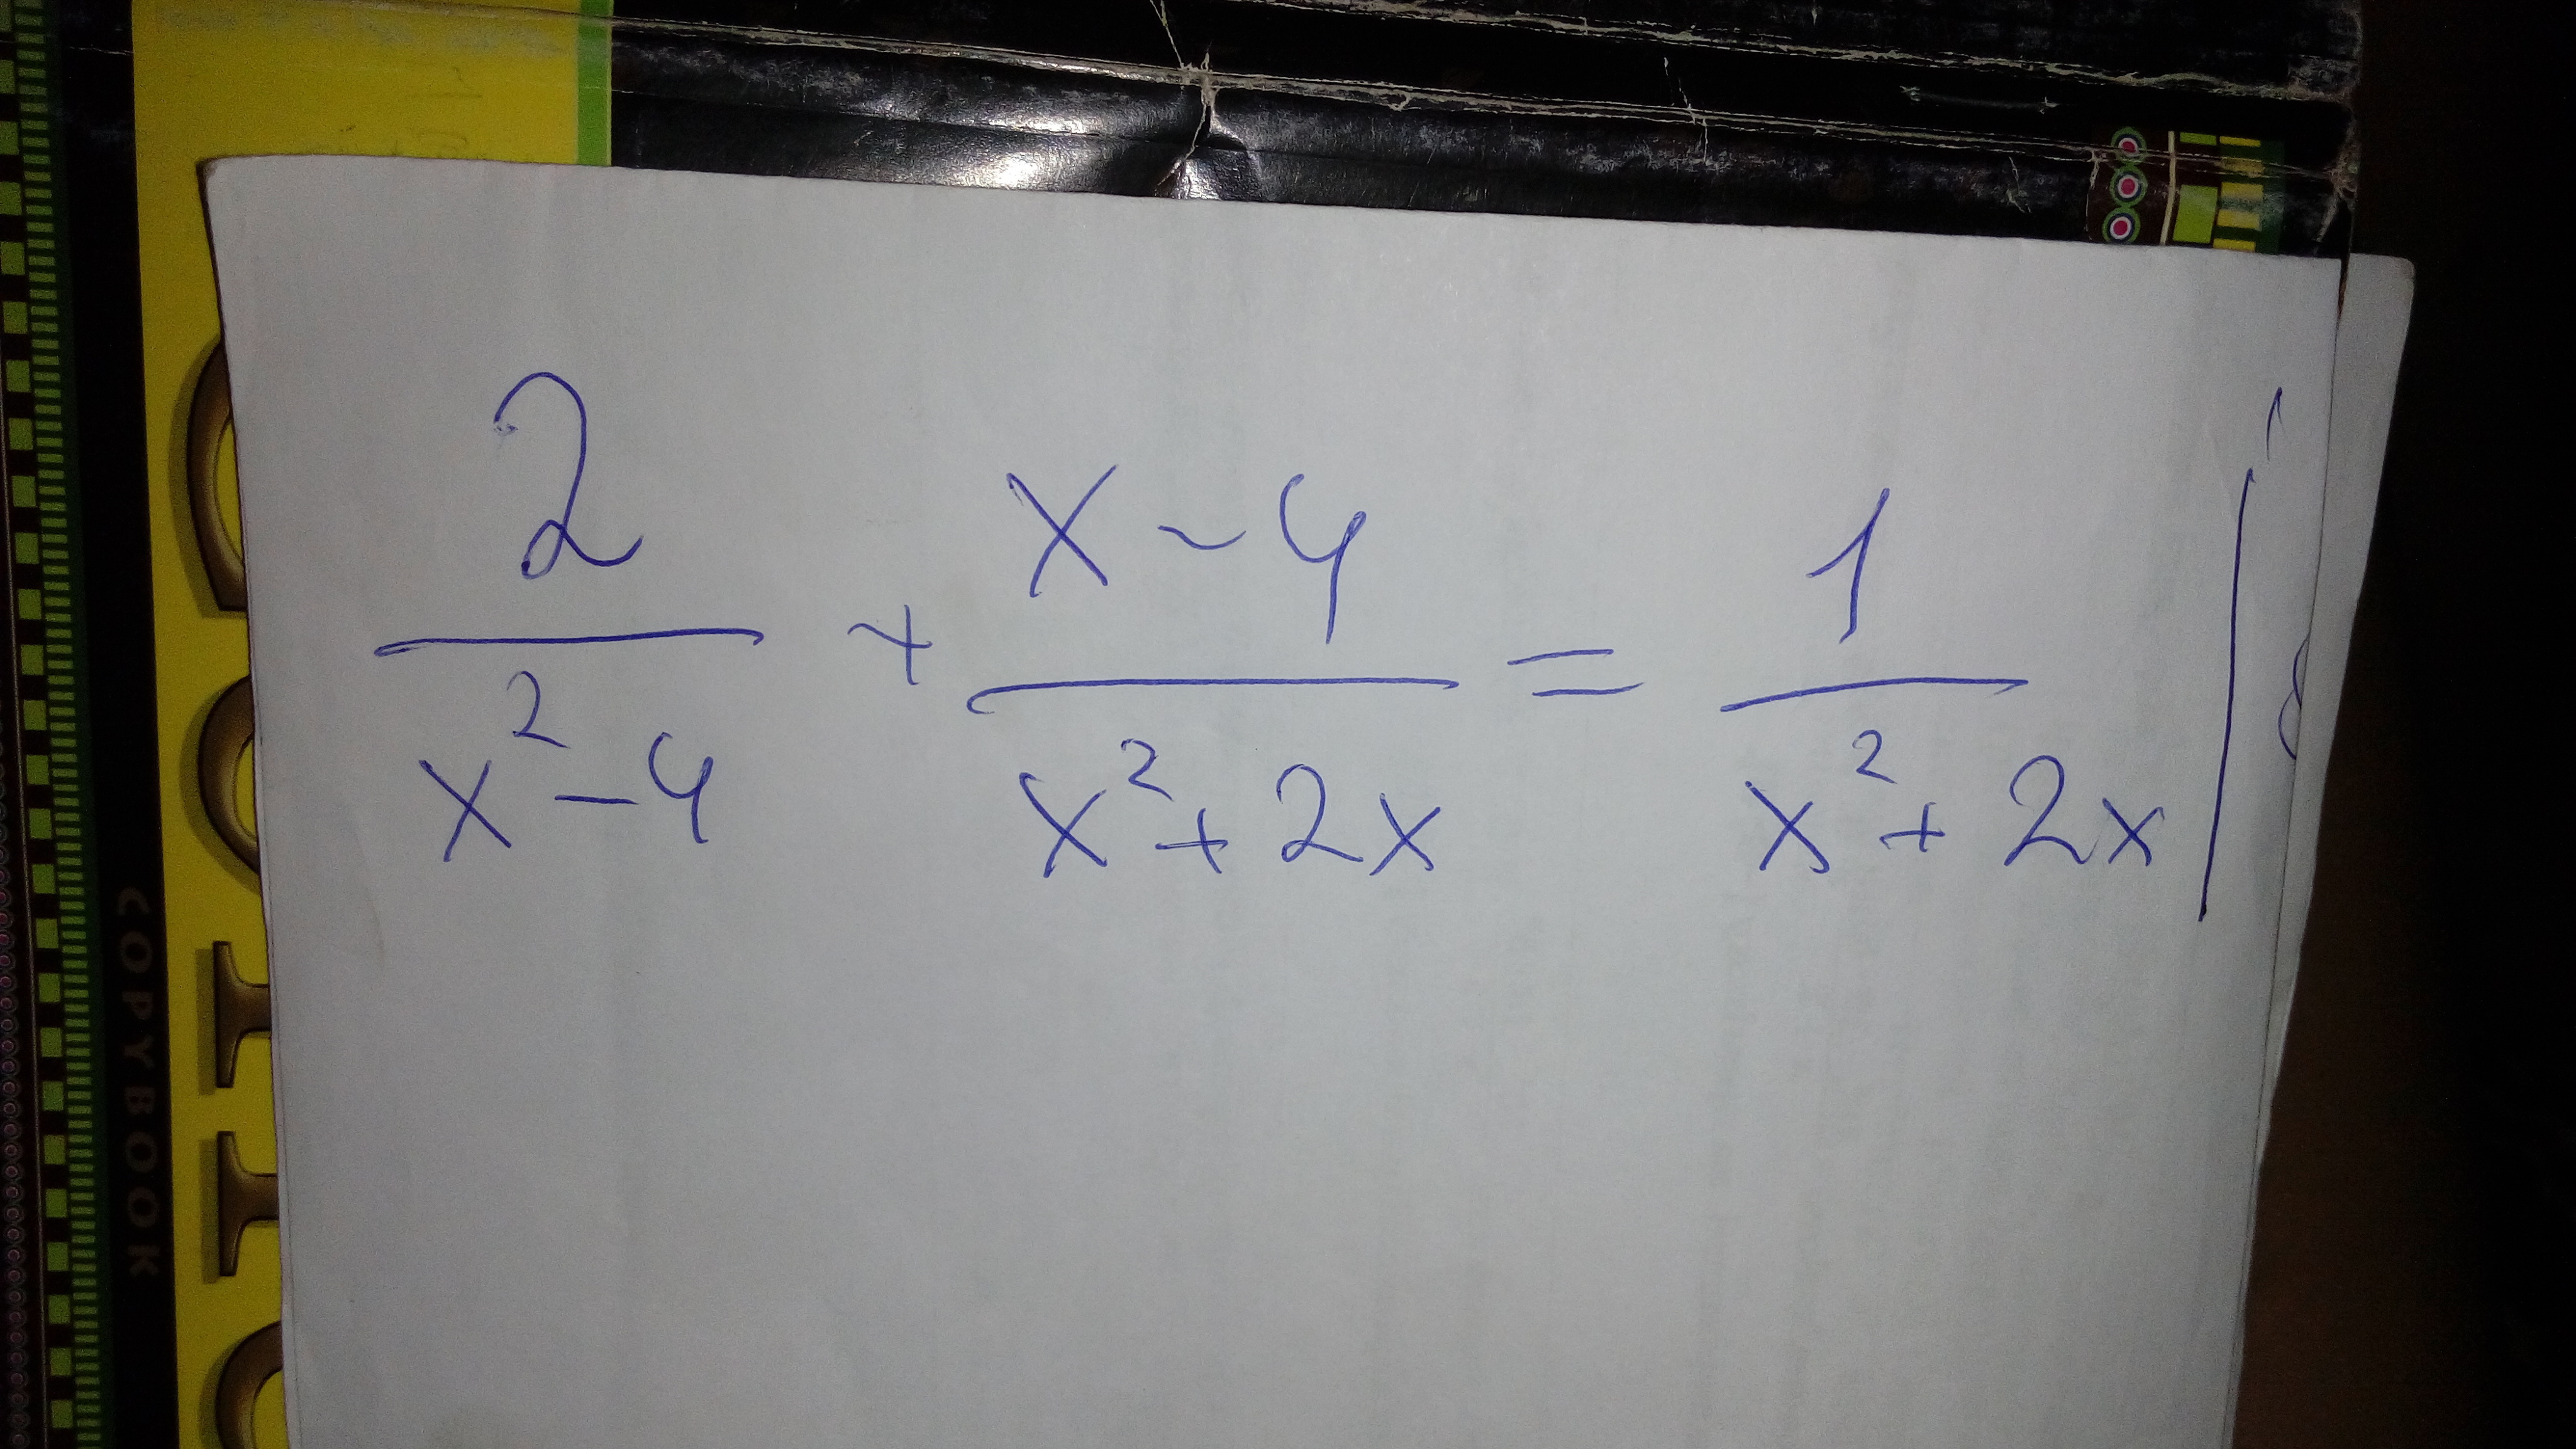 2/(x² - 4) + (x - 4)/(x² + 2x) = 1/(x² + 2x) |
COPYBOOK